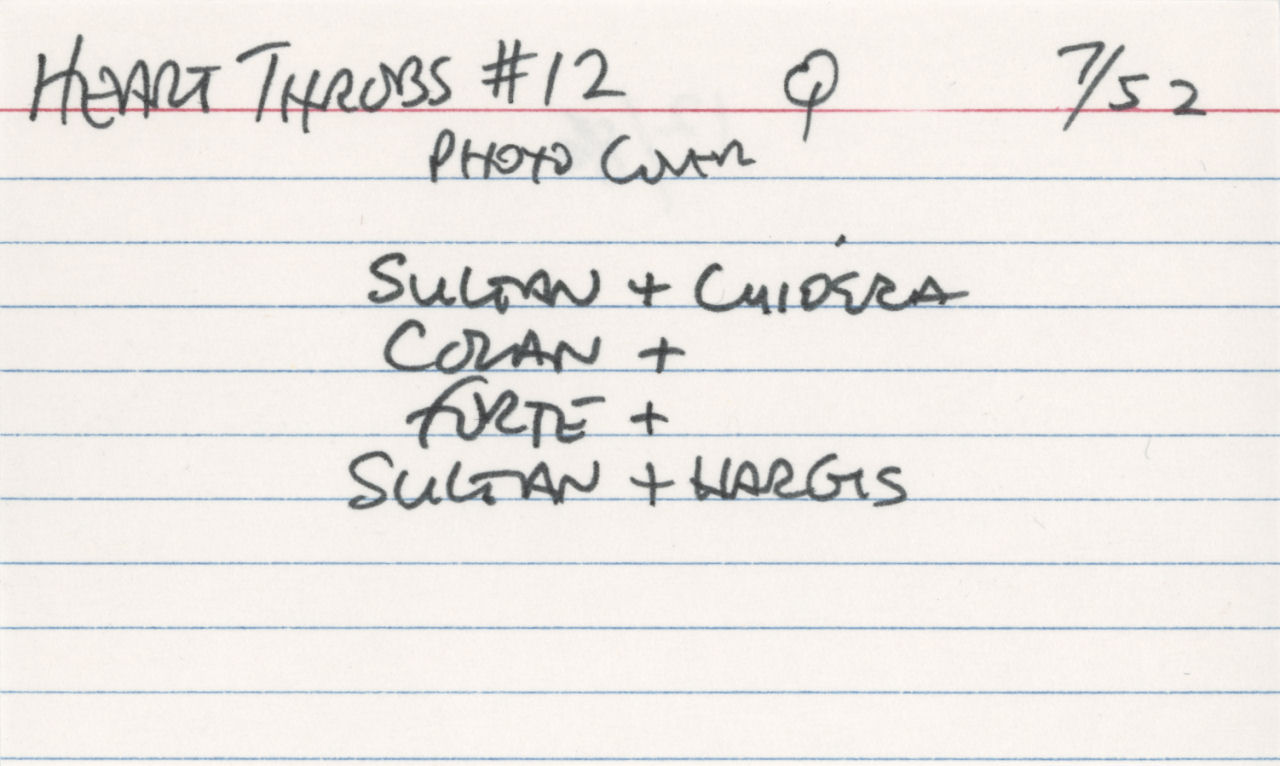 HEART THROBS #12 Q 7/52
PHOTO COVER
SULTAN + CUIDERA
COLAN +
FORTE +
SULTAN + HARGIS